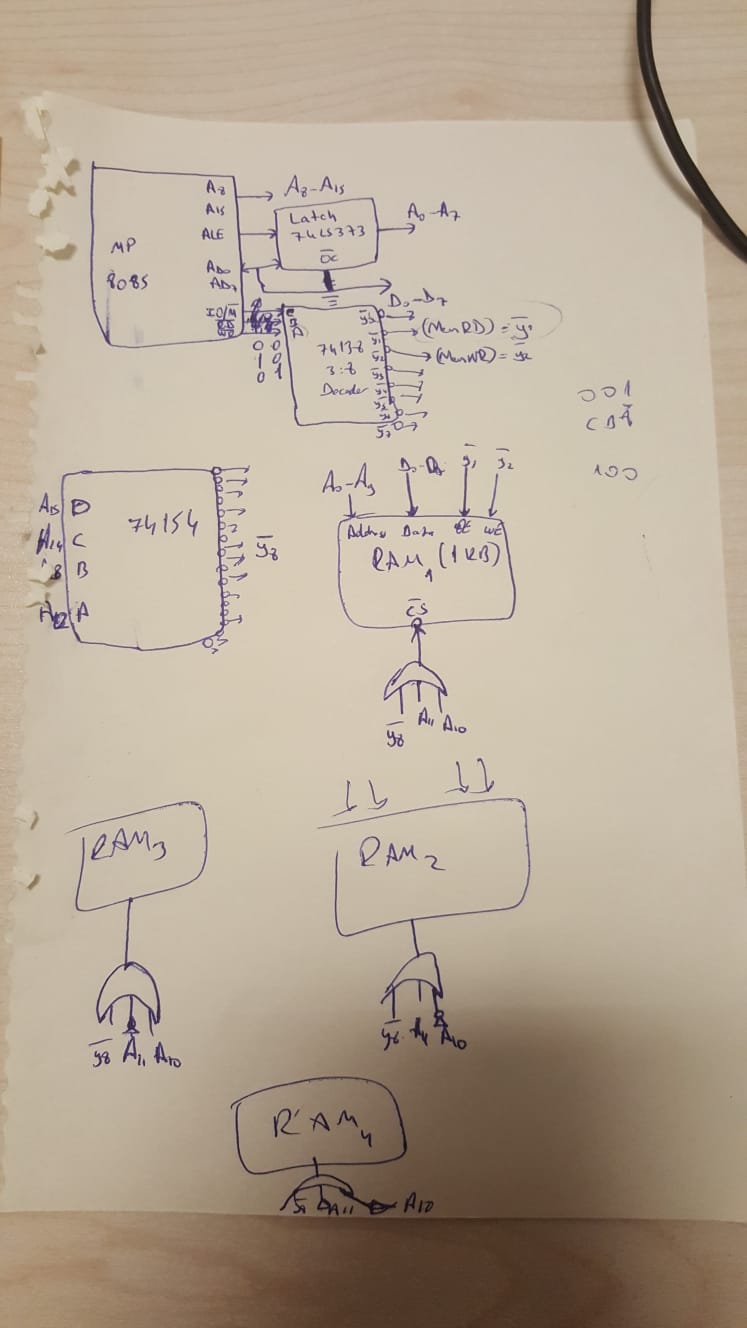 A8
A15
ALE
AD0
AD7
IO/M̅
MP
8085
A8-A15
Latch
74LS373
O̅C̅
A0-A7
D0-D7
C
B
A
0 0
1 0
0 1
74138
3:8
Decoder
y̅0
y̅1
y̅2
y̅3
y̅7
(MemRD) = y̅1
(MemWR) = y̅2
001
CBA
100
A15 D
A14 C
B
A12 A
74154
y̅8
A0-A9
y̅1
y̅2
Address Data WE
RAM1 (1KB)
C̅S̅
y̅8 A11 A10
RAM3
y̅8 A11 A10
RAM2
y̅8 A11 A10
RAM4
A11 A10